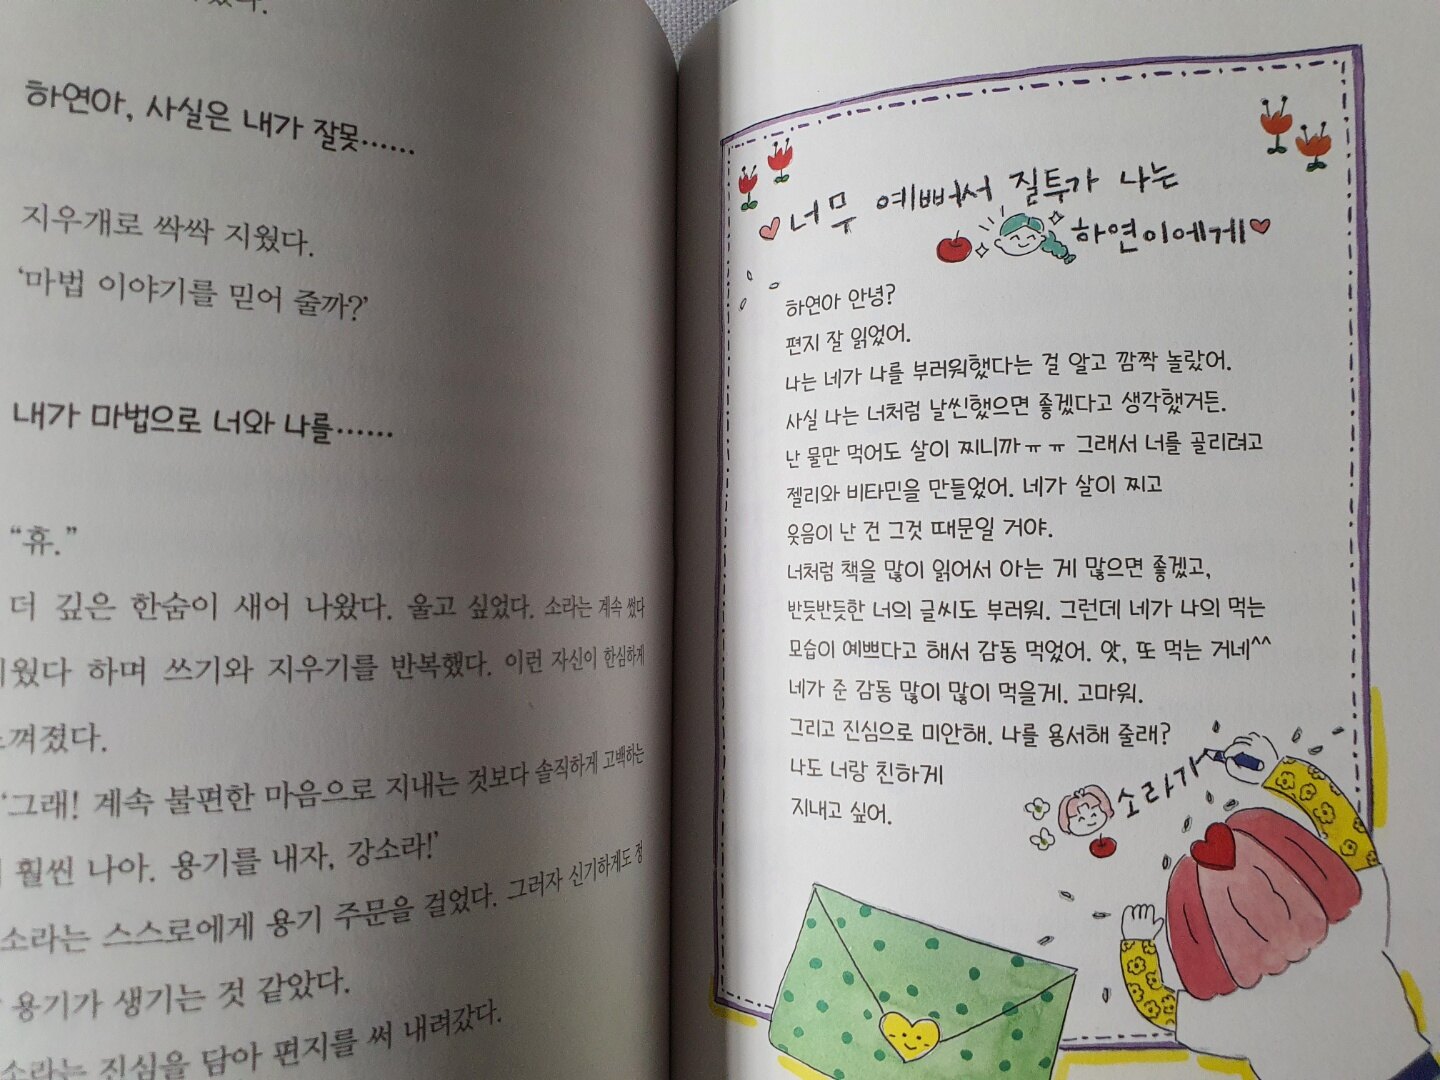 하연아, 사실은 내가 잘못……
지우개로 싹싹 지웠다.
‘마법 이야기를 믿어 줄까?’
내가 마법으로 너와 나를……
“휴.”
더 깊은 한숨이 새어 나왔다. 울고 싶었다. 소라는 계속 썼다
지웠다 하며 쓰기와 지우기를 반복했다. 이런 자신이 한심하게
느껴졌다.
‘그래! 계속 불편한 마음으로 지내는 것보다 솔직하게 고백하는
훨씬 나아. 용기를 내자, 강소라!’
소라는 스스로에게 용기 주문을 걸었다. 그러자 신기하게도 정
용기가 생기는 것 같았다.
소라는 진심을 담아 편지를 써 내려갔다.
너무 예뻐서 질투가 나는
하연이에게
하연아 안녕?
편지 잘 읽었어.
나는 네가 나를 부러워했다는 걸 알고 깜짝 놀랐어.
사실 나는 너처럼 날씬했으면 좋겠다고 생각했거든.
난 물만 먹어도 살이 찌니까ㅠㅠ 그래서 너를 골리려고
젤리와 비타민을 만들었어. 네가 살이 찌고
웃음이 난 건 그것 때문일 거야.
너처럼 책을 많이 읽어서 아는 게 많으면 좋겠고,
반듯반듯한 너의 글씨도 부러워. 그런데 네가 나의 먹는
모습이 예쁘다고 해서 감동 먹었어. 앗, 또 먹는 거네^^
네가 준 감동 많이 많이 먹을게. 고마워.
그리고 진심으로 미안해. 나를 용서해 줄래?
나도 너랑 친하게
지내고 싶어.
소라가